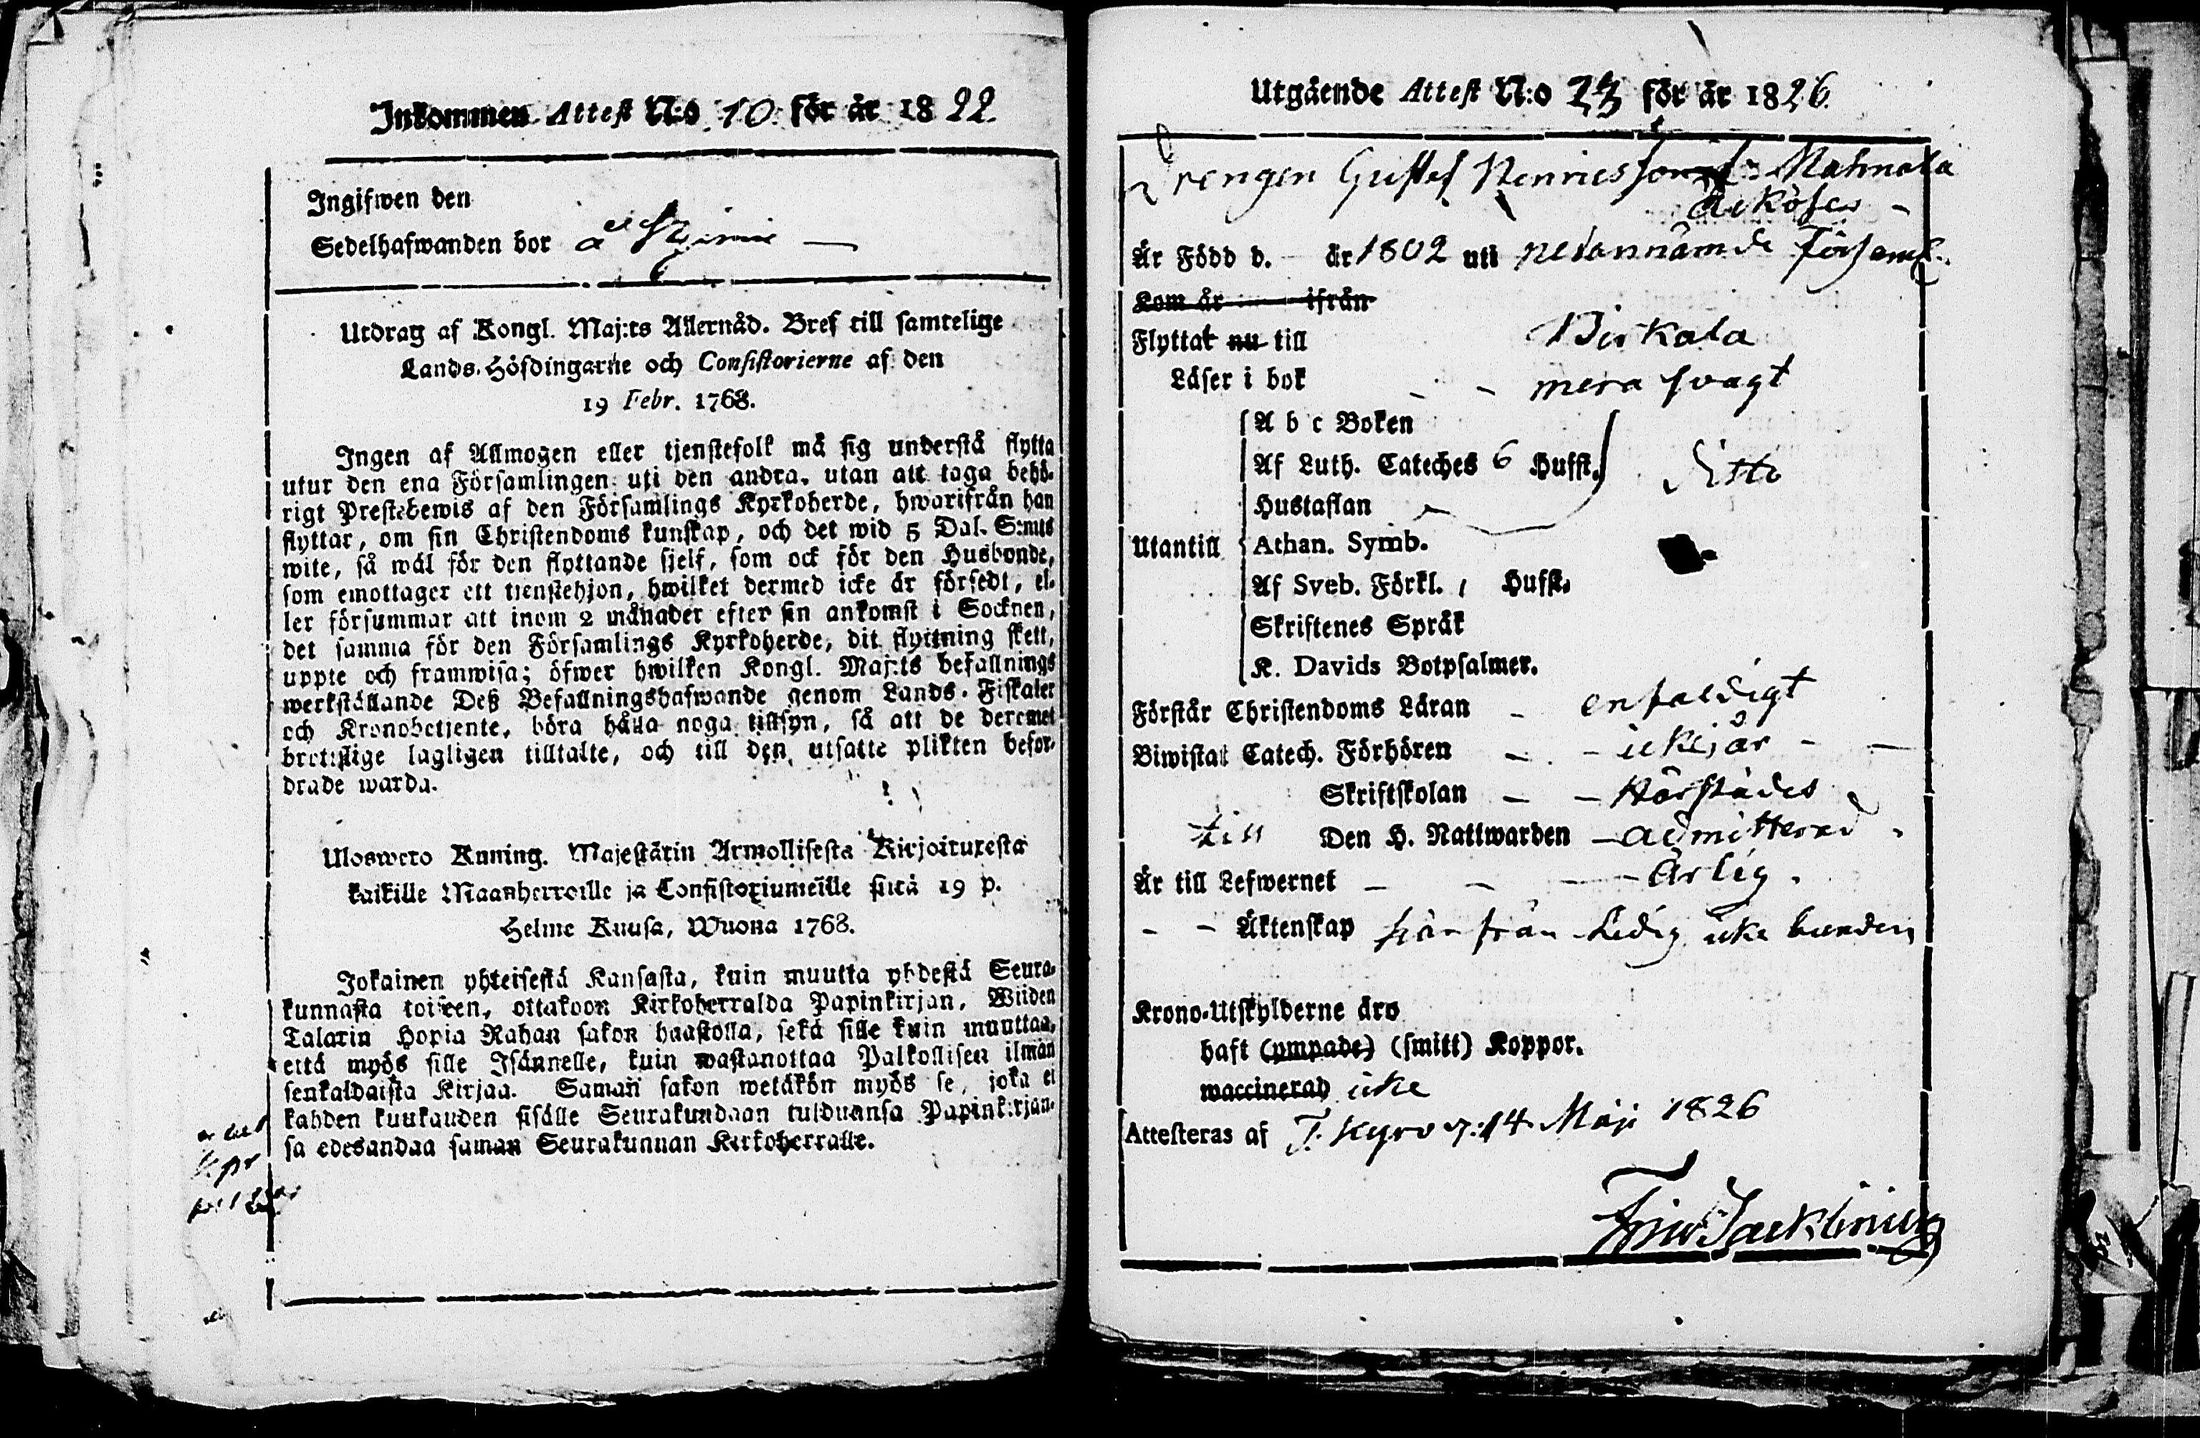 Inkommen Attest N:o 10 för år 1822.
Ingifwen den
Sedelhafwanden bor å
Utdrag af Kongl. Maj:ts Allernåd. Bref till samtelige
Lands-Höfdingarne och Consistorierne af den
19 Febr. 1768.
Ingen af Allmogen eller tjenstefolk må sig understå flytta
utur den ena Församlingen uti den andra, utan att taga behö-
rigt Prestebewis af den Församlings Kyrkoherde, hwarifrån han
flyttar, om sin Christendoms kunskap, och det wid 5 Dal. S:mts
wite, så wäl för den flyttande sjelf, som ock för den Husbonde,
som emottager ett tjenstehjon, hwilket dermed icke är försedt, el-
ler försummar att inom 2 månader efter sin ankomst i Socknen,
det samma för den Församlings Kyrkoherde, dit flyttning skett,
uppte och framwisa; öfwer hwilken Kongl. Maj:ts befallnings
werkställande Deß Befallningshafwande genom Lands-Fiskaler
och Kronobetjente, böra hålla noga tillsyn, så att de deremot
brottslige lagligen tilltalte, och till den utsatte plikten befor-
drade warda.
Uloswето Kuning. Majestätin Armollisesta Kirjoituxesta
kaikille Maanherroille ja Consistoriumeille siitä 19 p.
Helme Kuusa, Wuona 1768.
Jokainen yhteisestä Kansasta, kuin muutta yhdestä Seura-
kunnasta toiseen, ottakoon Kirkoherralda Papinkirjan, Wiiden
Talarin Hopia Rahan sakon haastolla, sekä sille kuin muuttaa,
että myös sille Isännelle, kuin wastanottaa Palkollisen ilman
senkaldaista Kirjaa. Saman sakon wetäkön myös se, joka ei
kahden kuukauden sisälle Seurakundaan tulduansa Papinkirjan-
sa edesandaa saman Seurakunnan Kirkoherralle.
Utgående Attest N:o 23 för år 1826.
Drengen Gustef Henricsson Mahnala
Är Född d. år 1802 uti nedannämde Församl.
Kom år ifrån
Flyttat nu till Birkala
Läser i bok mera svagt
A b c Boken
Af Luth. Cateches 6 Hufst. Ditto
Hustaflan
Utantill Athan. Symb.
Af Sveb. Förkl. 1 Hufst.
Skriftenes Språk
K. Davids Botpsalmer.
Förstår Christendoms Läran enfaldigt
Biwistat Catech. Förhören
Skriftskolan härstädes
till Den H. Nattwarden admitterad.
Är till Lefwernet Ärlig.
Äktenskap här från Ledig icke bunden
Krono-Utskylderne äro
haft (ympade) (smitt) Koppor.
waccinerad icke
Attesteras af T. Kyro d. 14 Maji 1826